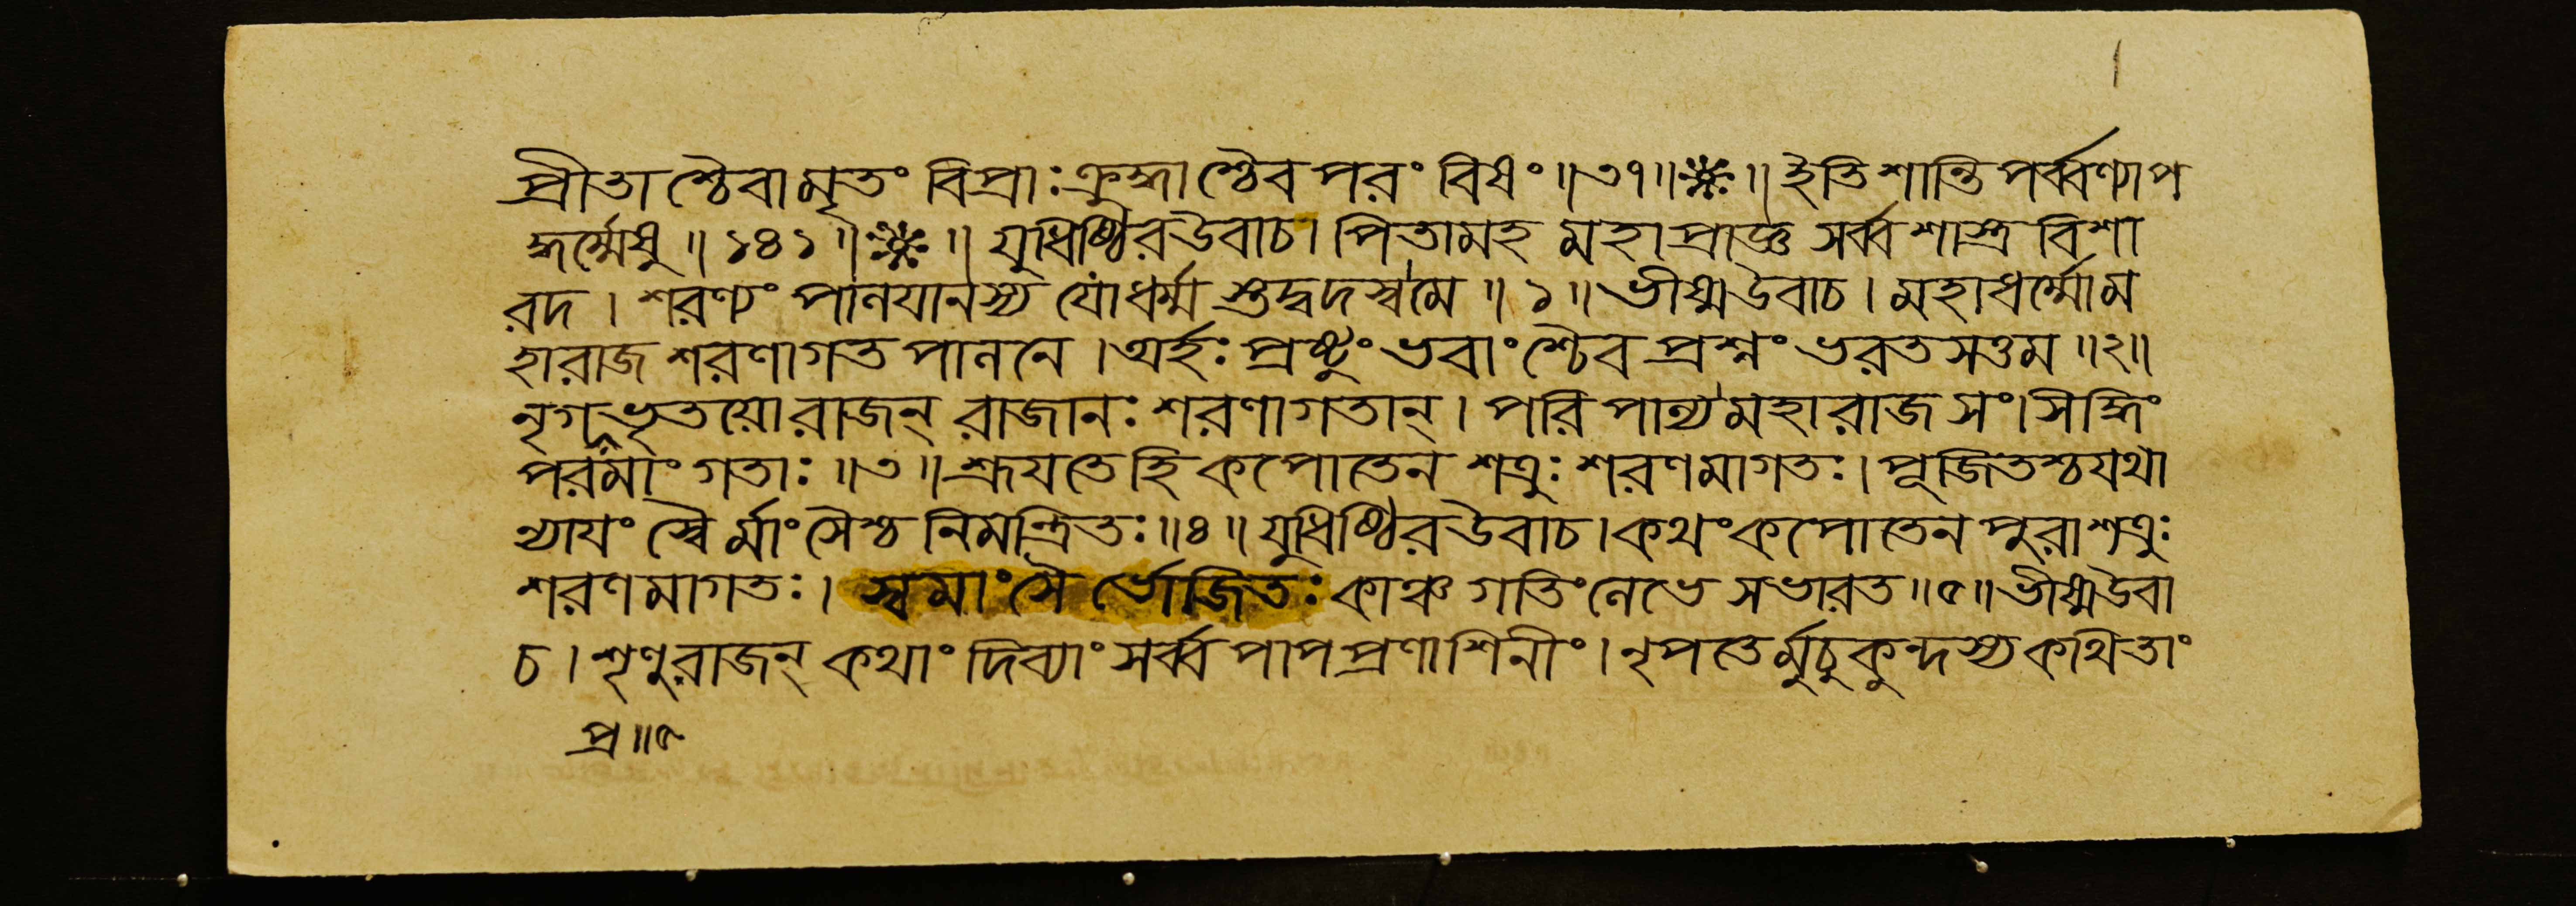 প্রীতাশ্চৈবামৃতং বিপ্রাঃ ক্রুদ্ধাশ্চৈব পরং বিষং ॥ ৩৭ ॥ ❈ ॥ ইতি শান্তিপর্ব্বণ্যাপ
দ্ধর্ম্মেষু ॥ ১৪১ ॥ ❈ ॥ যুধিষ্ঠির উবাচ। পিতামহ মহাপ্রাজ্ঞ সর্ব্বশাস্ত্র বিশা
রদ । শরণ্যং পালযানস্য যো ধর্ম্ম স্তদ্বদস্ব মে ॥ ১ ॥ ভীষ্ম উবাচ । মহাধর্ম্মো ম
হারাজ শরণাগত পালনে । অর্হঃ প্রষ্টুং ভবাংশ্চৈব প্রশ্নং ভরতসত্তম ॥ ২ ॥
নৃগপ্রভৃতয়ো রাজন্ রাজানঃ শরণাগতান্ । পরিপাল্য মহারাজ সং।সিদ্ধিং
পরমাং গতাঃ ॥ ৩ ॥ শ্রূযতে হি কপোতেন শত্রুঃ শরণমাগতঃ । পূজিতশ্চ যথা
ন্যাযং স্বৈর্মাংসৈশ্চ নিমন্ত্রিতঃ ॥ ৪ ॥ যুধিষ্ঠির উবাচ । কথং কপোতেন পুরা শত্রুঃ
শরণমাগতঃ । স্বমাংসৈর্ভোজিতঃ কাঞ্চ গতিং লেভে স ভারত ॥ ৫ ॥ ভীষ্ম উবা
চ । শৃণু রাজন্ কথাং দিব্যাং সর্ব্বপাপপ্রণাশিনীং । নৃপতের্মুচুকুন্দস্য কথিতাং
প্র ॥ ৫